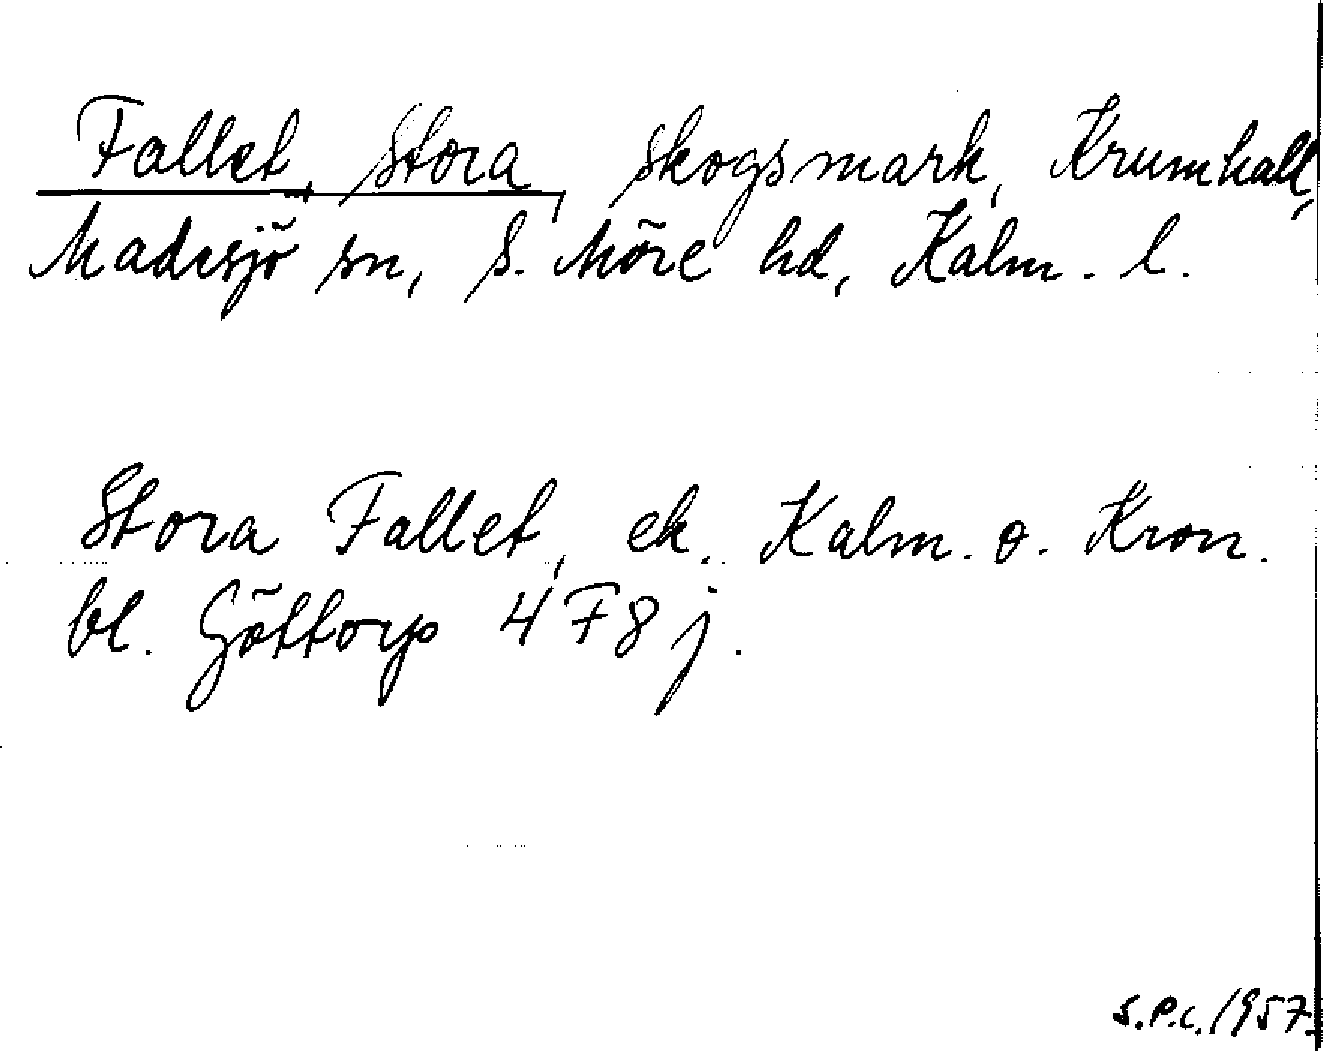 Fallet, Stora, skogsmark, Krumhall,
Madesjö sn, S. Möre hd, Kalm. l.
Stora Fallet, ek. Kalm. o. Kron.
bl. Göttorp 4F8j.
S.P.C. 1957.